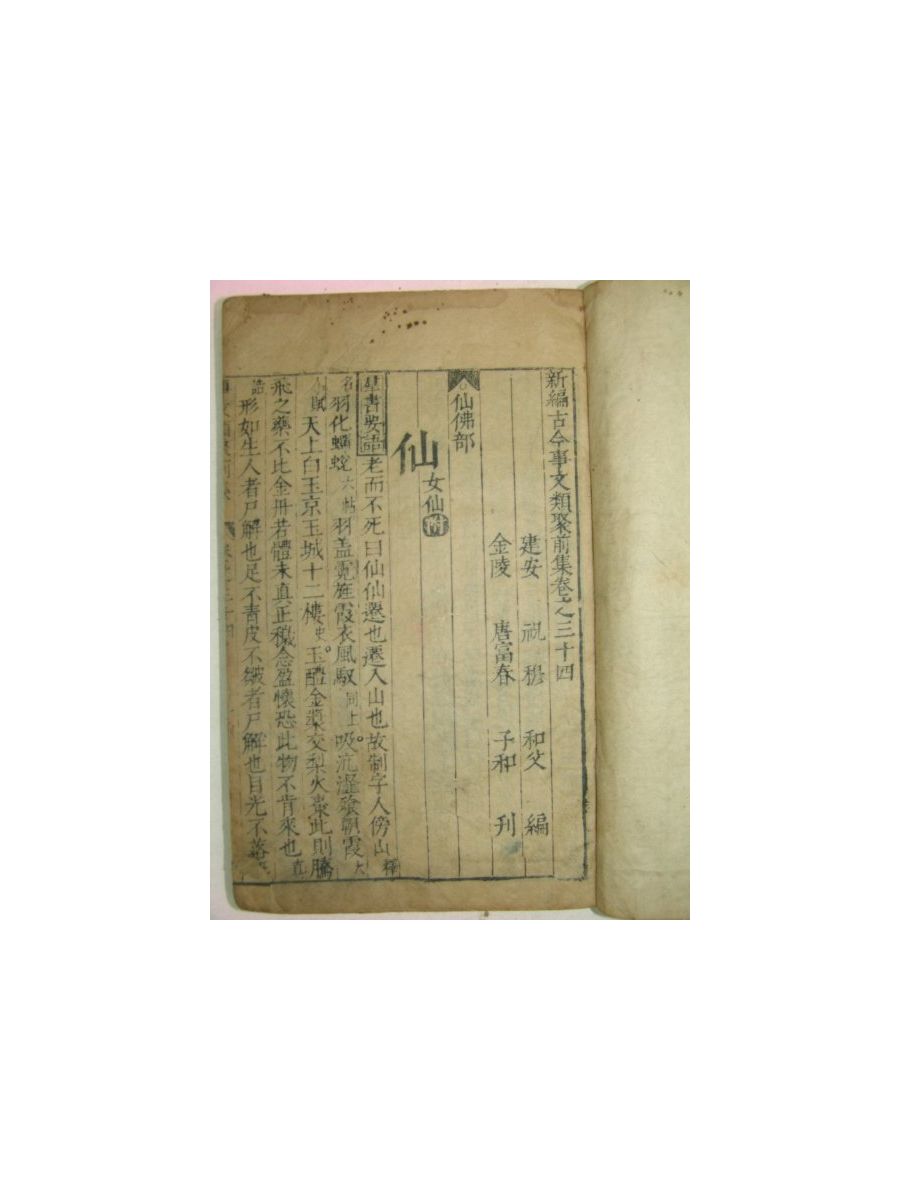 新編古今事文類聚前集卷之三十四
建安 祝 穆 和父 編
金陵 唐富春 子和 刊
仙佛部
仙 女仙附
羣書要語 老而不死曰仙仙遷也遷入山也故制字人傍山 釋
名 羽化蟬蛻 六帖 羽盖霓旌霞衣風馭 同上 吸沆瀣飱朝霞 大
人賦 天上白玉京玉城十二樓 史 玉醴金漿交梨火棗此則騰
飛之藥不比金丹若體未真正穢念盈懷恐此物不肯來也 真
誥 形如生人者尸解也足不青皮不皺者尸解也目光不落